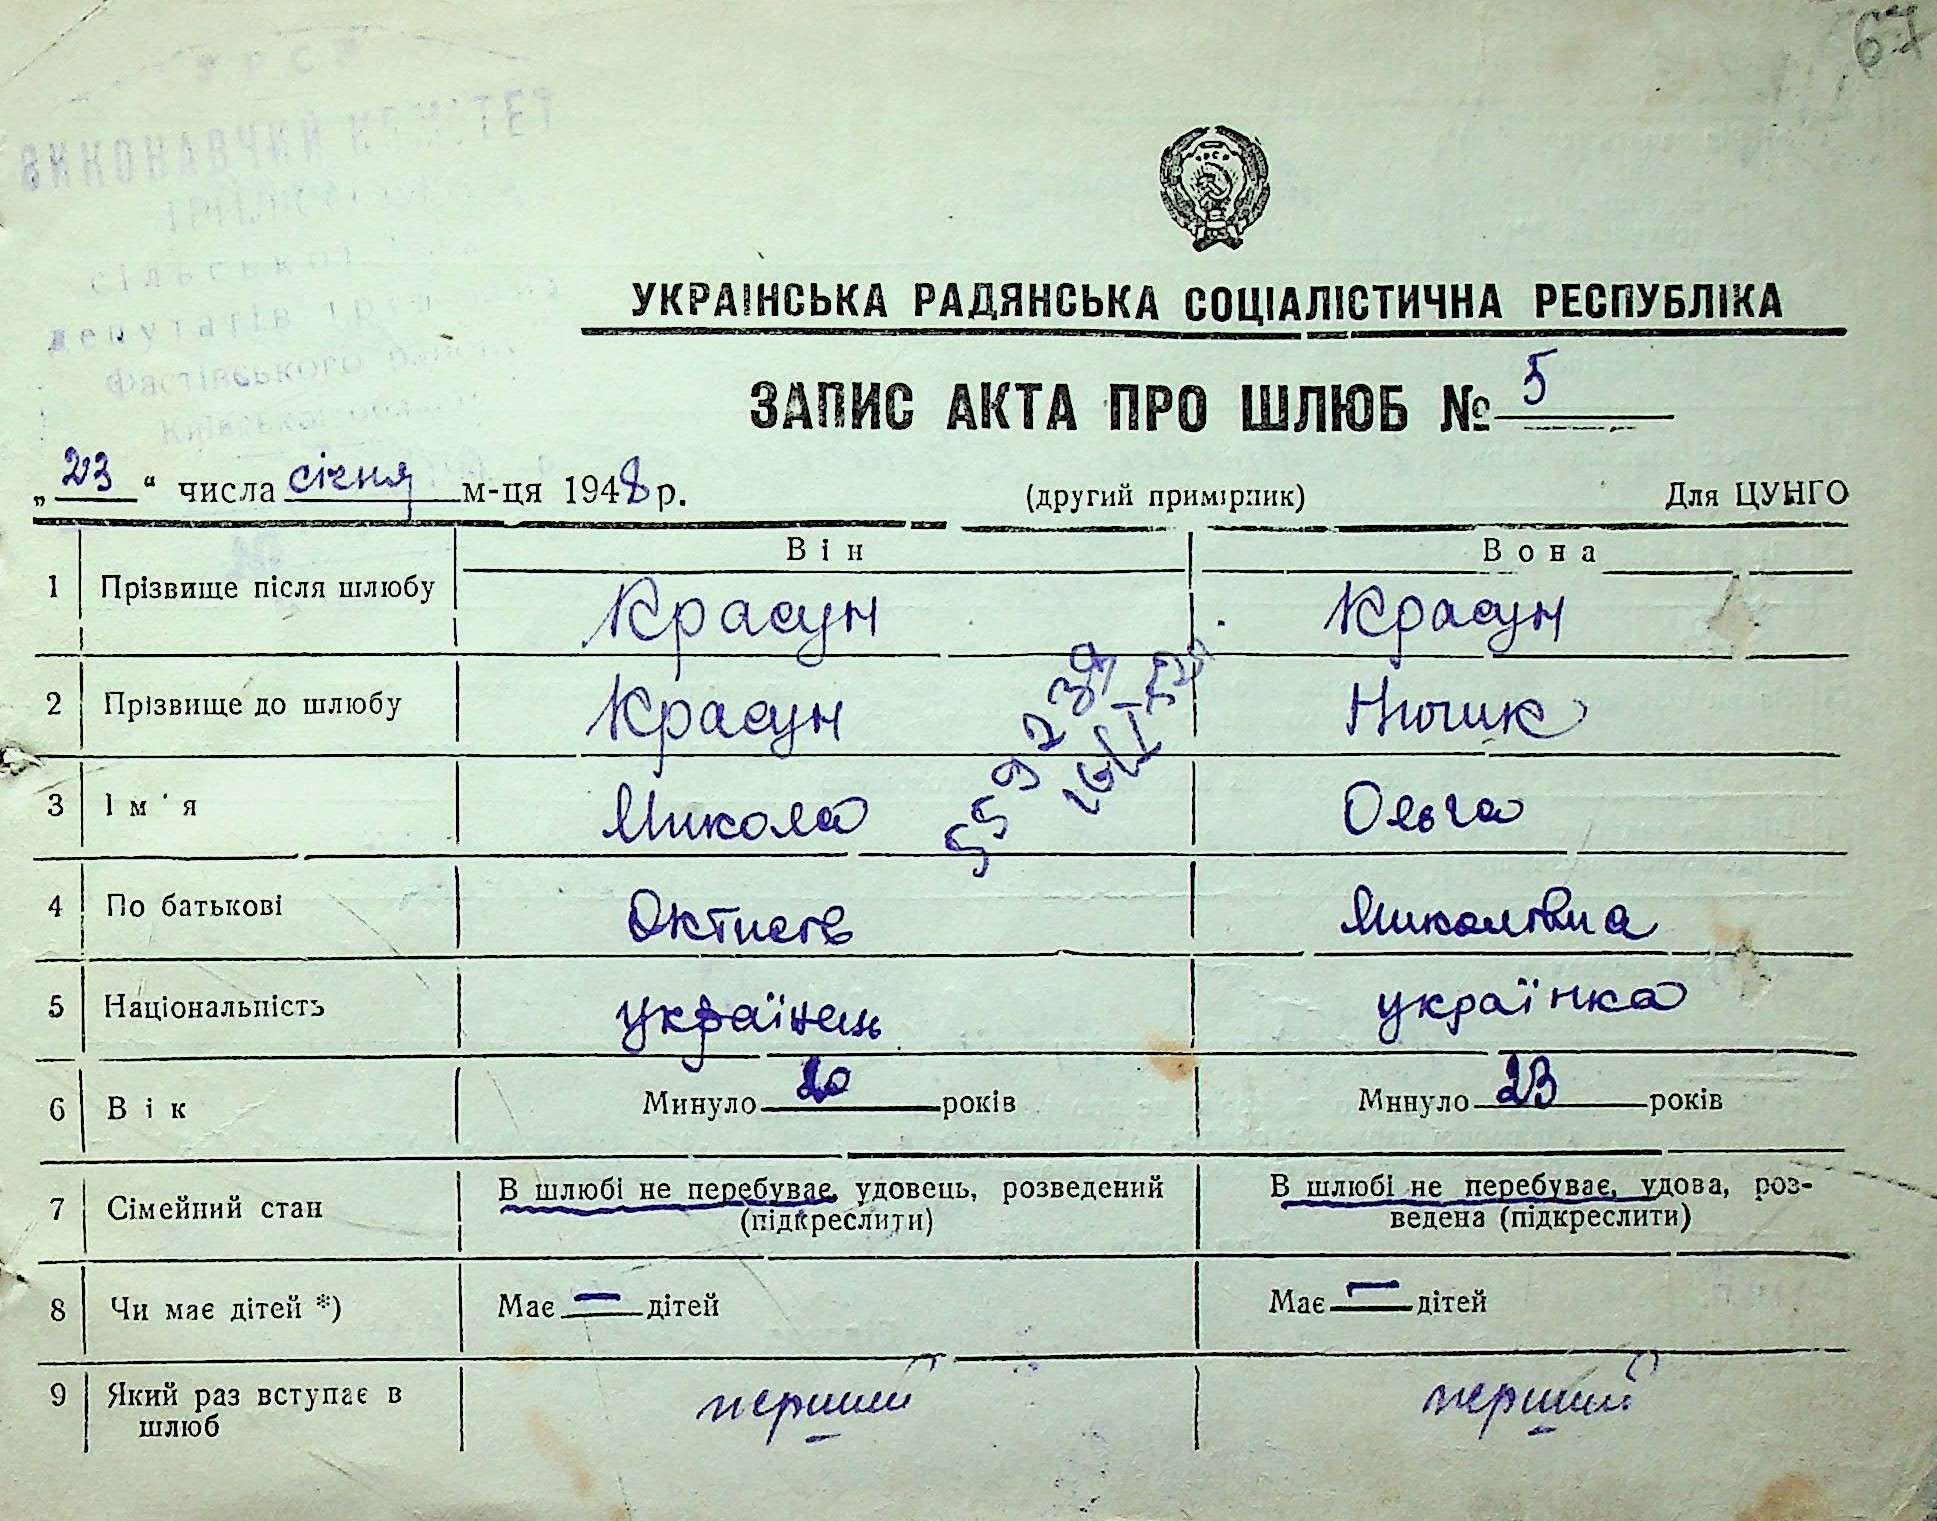 67
УРСР
ВИКОНАВЧИЙ КОМІТЕТ
сільської
депутатів
Фастівського
Київської
УКРАЇНСЬКА РАДЯНСЬКА СОЦІАЛІСТИЧНА РЕСПУБЛІКА
ЗАПИС АКТА ПРО ШЛЮБ № 5
„ 23 “ числа січня м-ця 1948 р. (другий примірник) Для ЦУНГО
Він Вона
1 Прізвище після шлюбу Красун Красун
2 Прізвище до шлюбу Красун
559239
3 Ім'я Микола Ольга
4 По батькові Миколівна
5 Національність українець українка
6 Вік Минуло 20 років Минуло 23 років
7 Сімейний стан В шлюбі не перебуває, удовець, розведений В шлюбі не перебуває, удова, роз-
(підкреслити) ведена (підкреслити)
8 Чи має дітей *) Має — дітей Має — дітей
9 Який раз вступає в перший перший
шлюб